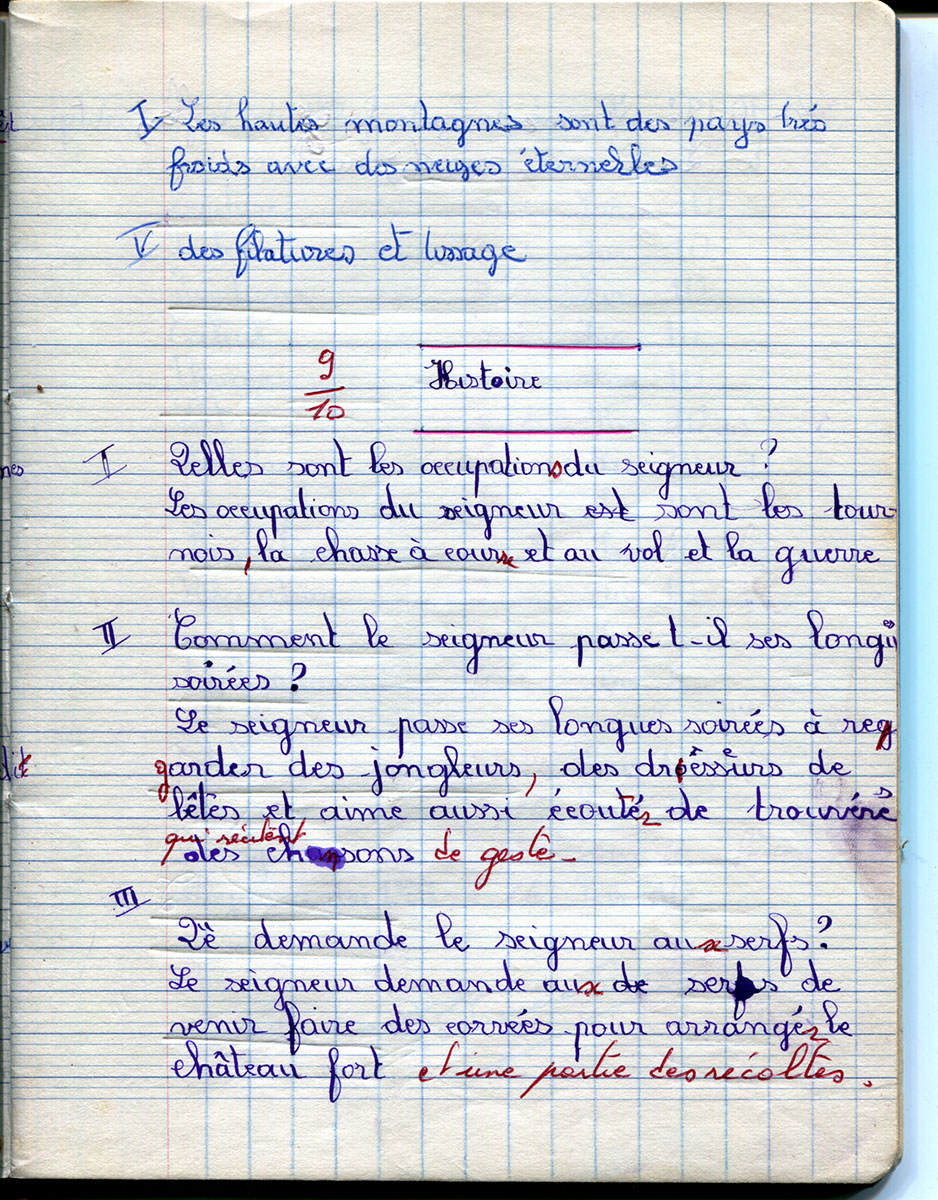 I Les hautes montagnes sont des pays trés
froids avec des neiges éternerles
V des filatures et tissage
9/10 Histoire
I Qelles sont les occupations du seigneur ?
Les occupations du seigneur est sont les tour
nois, la chasse à courre et au vol et la guerre
II Comment le seigneur passe t-il ses longues
soirées ?
Le seigneur passe ses longues soirées à reg
garder des jongleurs, des dresseurs de
bêtes et aime aussi écoutér de trouvéres
qui récitent
des chansons de geste -
III
Qe demande le seigneur aux serfs ?
Le seigneur demande aux de serfs de
venir faire des corvées pour arrangér le
château fort et une partie des récoltes.